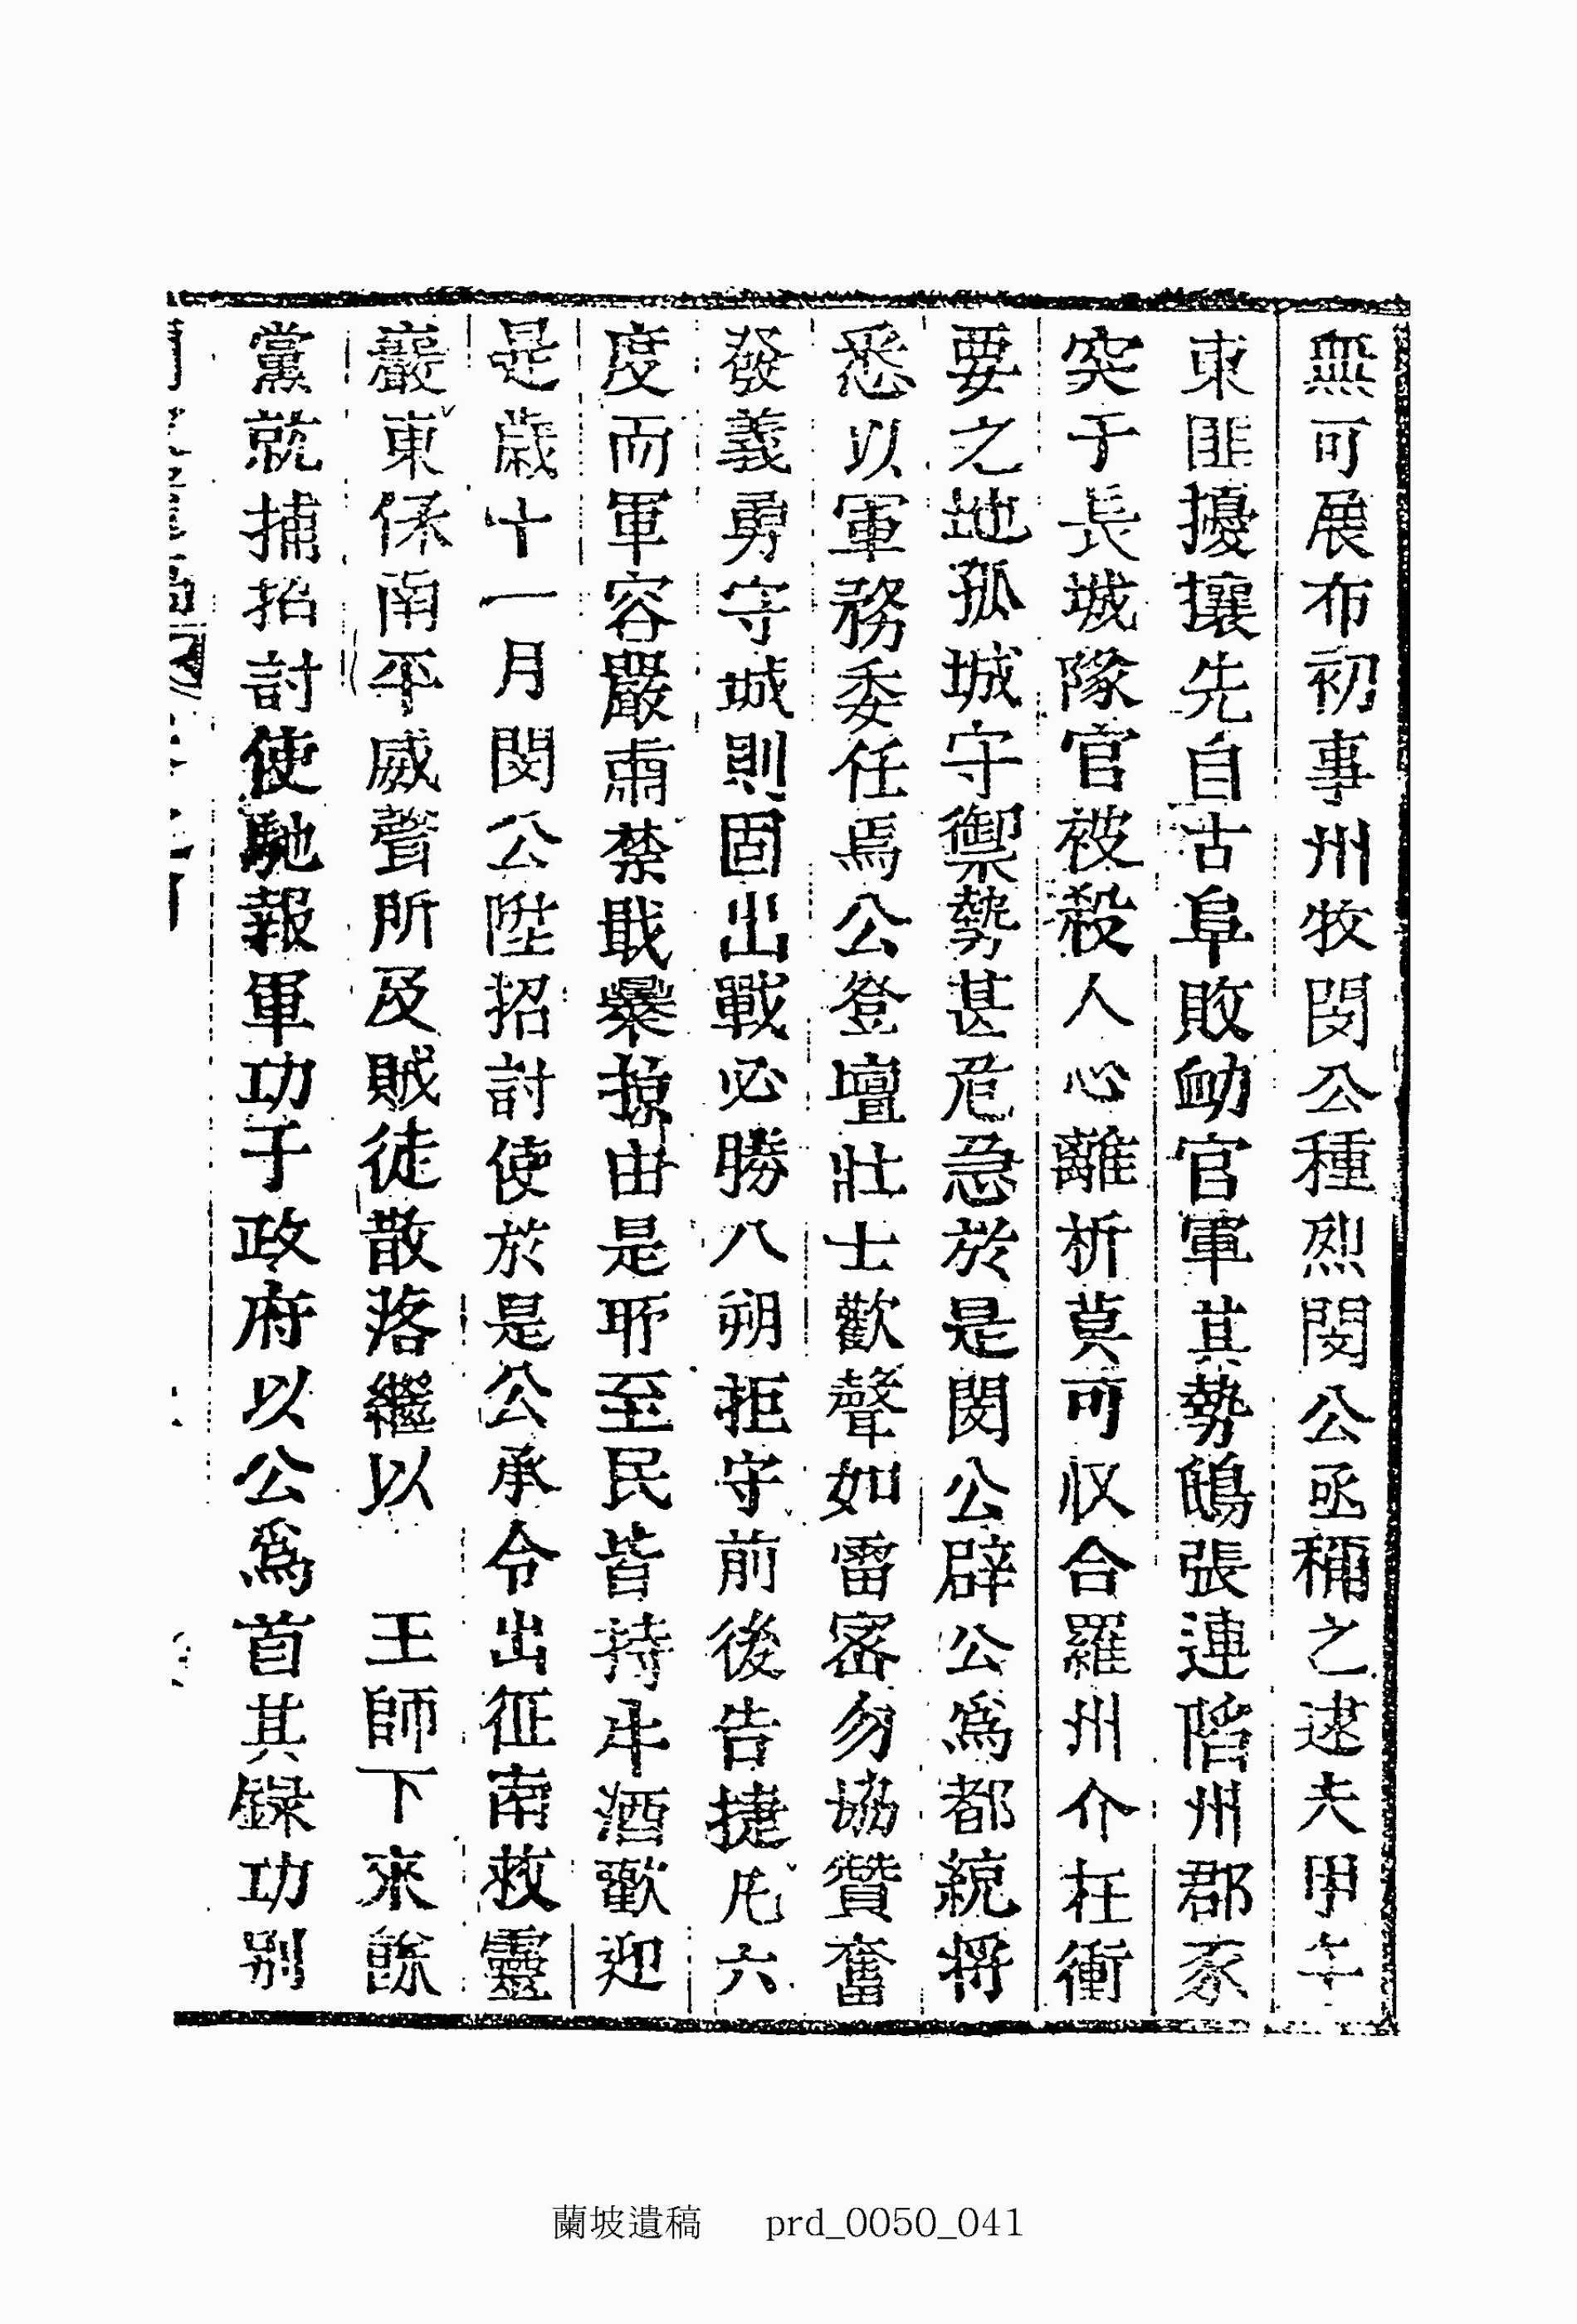 無可展布初事州牧閔公種烈閔公亟稱之逮夫甲午
東匪擾攘先自古阜敗衂官軍其勢鴟張連陷州郡豕
突于長城隊官被殺人心離析莫可収合羅州介在衝
要之地孤城守禦勢甚危急於是閔公辟公爲都統将
悉以軍務委任焉公登壇壯士歡聲如雷密勿協贊奮
發義勇守城則固出戰必勝八朔拒守前後告捷凡六
度而軍容嚴肅禁戢暴掠由是所至民皆持牛酒歡迎
是歳十一月閔公陞招討使於是公承令出征南救靈
巖東保南平威聲所及賊徒散落繼以　王師下來餘
黨就捕招討使馳報軍功于政府以公爲首其錄功别
蘭坡遺稿 prd_0050_041